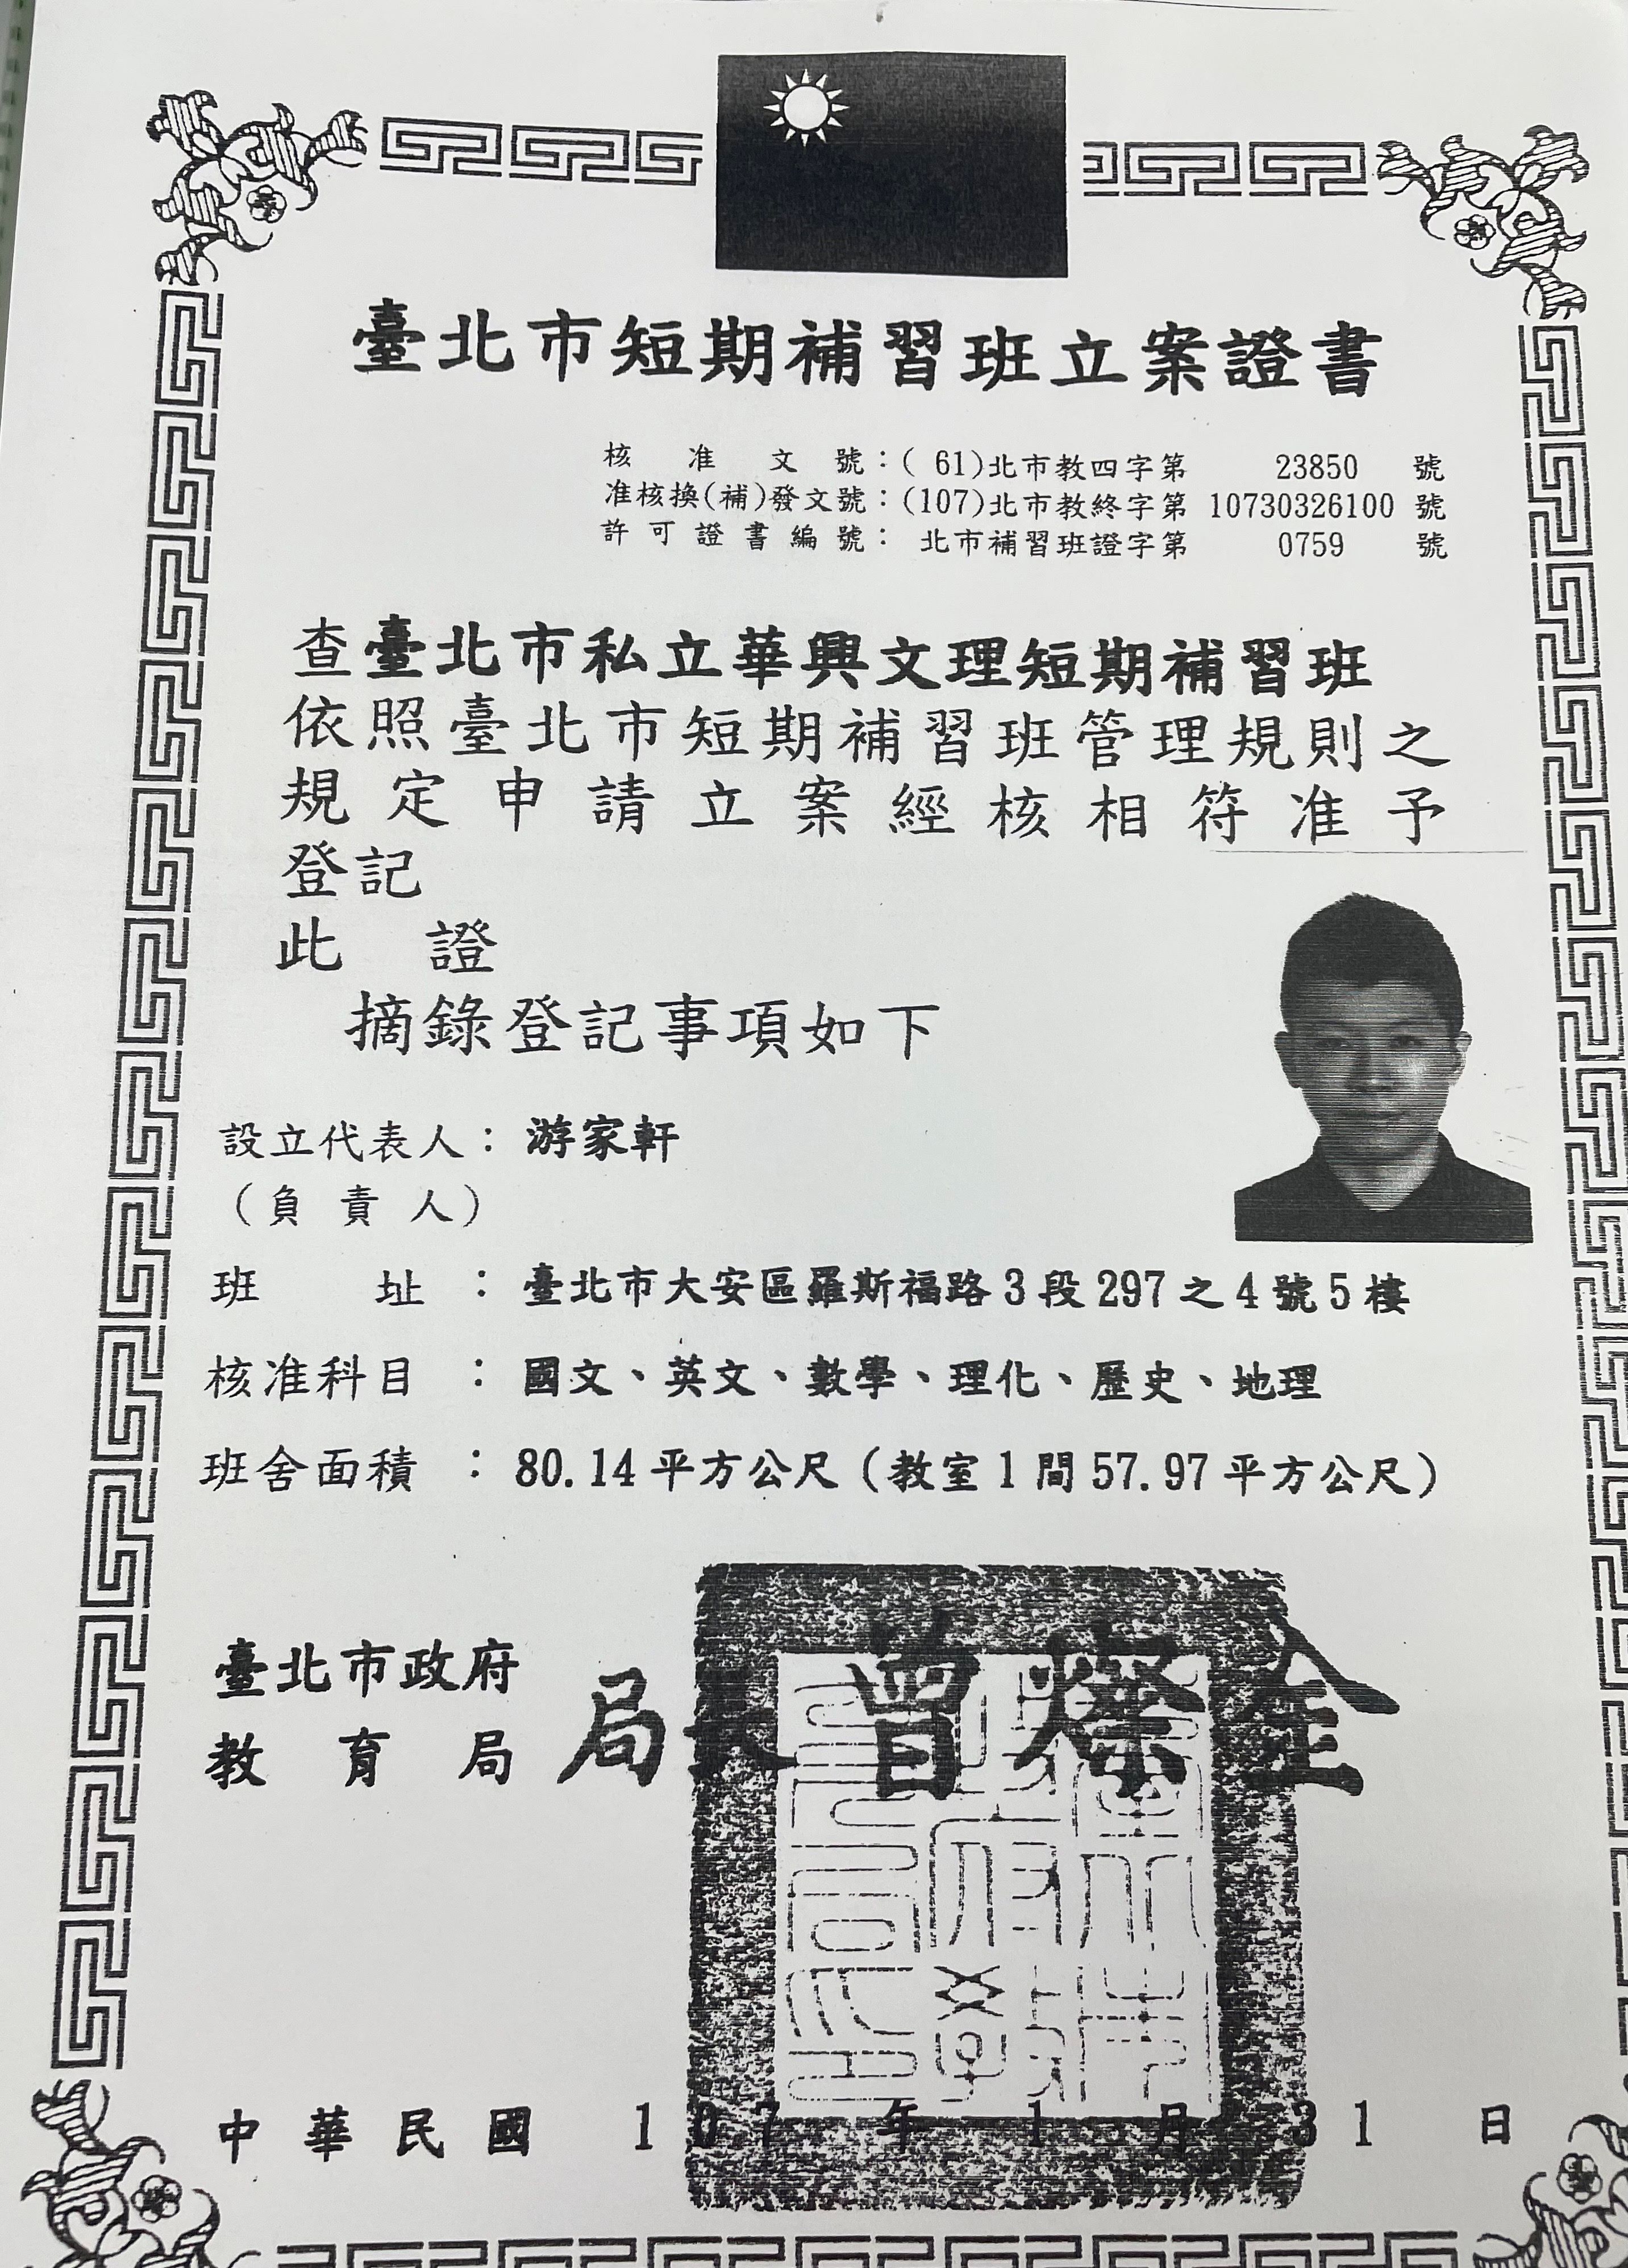 臺北市短期補習班立案證書
核准文號：(61)北市教四字第 23850 號
准核換(補)發文號：(107)北市教終字第 10730326100 號
許可證書編號：北市補習班證字第 0759 號
查臺北市私立華興文理短期補習班
依照臺北市短期補習班管理規則之
規定申請立案經核相符准予
登記
此證
摘錄登記事項如下
設立代表人：游家軒
（負責人）
班址：臺北市大安區羅斯福路3段297之4號5樓
核准科目：國文、英文、數學、理化、歷史、地理
班舍面積：80.14平方公尺（教室1間57.97平方公尺）
臺北市政府
教育局 局長 曾燦金
中華民國 107 年 1 月 31 日